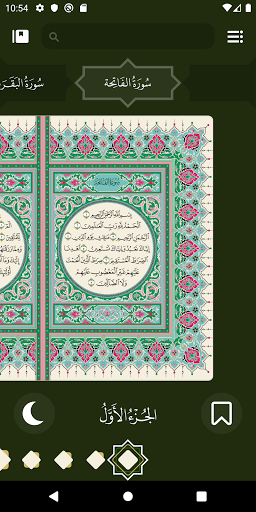 10:54
سُورَةُ الفَاتِحَة
سُورَةُ البَقَرَ
سورة الفاتحة
بسم الله الرحمن الرحيم ١
الحمد لله رب العالمين ٢
الرحمن الرحيم ٣ ملك يوم الدين ٤
إياك نعبد وإياك نستعين ٥
اهدنا الصراط المستقيم ٦
صراط الذين أنعمت عليهم
غير المغضوب عليهم
ولا الضالين ٧
الجُزءُ الأَوَّلُ